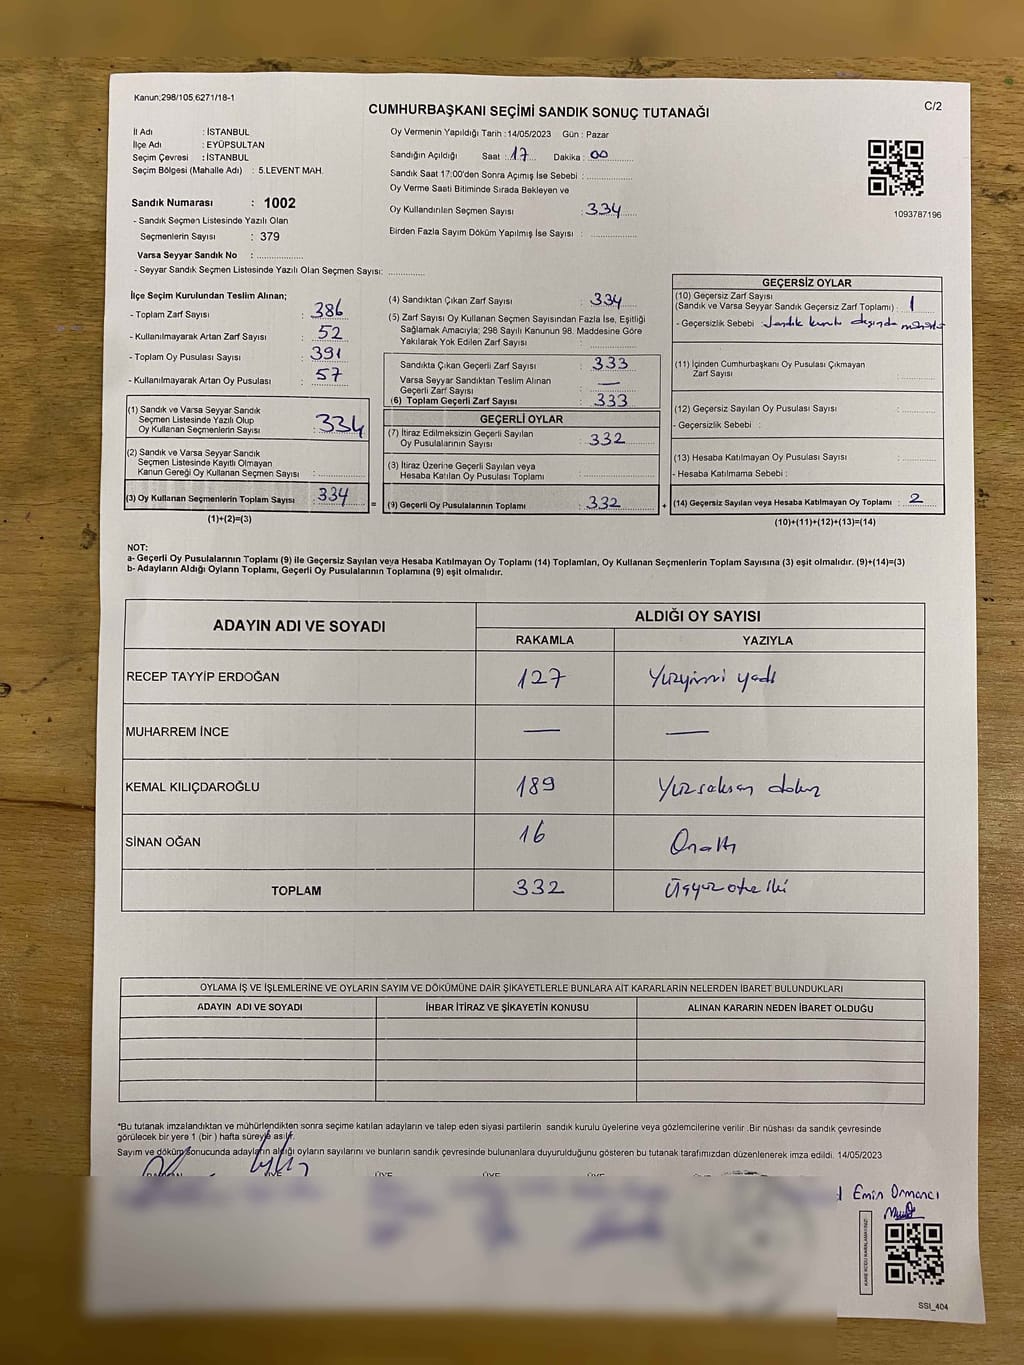 Kanun;298/105,6271/18-1
C/2
CUMHURBAŞKANI SEÇİMİ SANDIK SONUÇ TUTANAĞI
İl Adı : İSTANBUL
İlçe Adı : EYÜPSULTAN
Seçim Çevresi : İSTANBUL
Seçim Bölgesi (Mahalle Adı) : 5.LEVENT MAH.
Sandık Numarası : 1002
- Sandık Seçmen Listesinde Yazılı Olan
Seçmenlerin Sayısı : 379
Varsa Seyyar Sandık No : ..................
- Seyyar Sandık Seçmen Listesinde Yazılı Olan Seçmen Sayısı: ..............
Oy Vermenin Yapıldığı Tarih : 14/05/2023 Gün : Pazar
Sandığın Açıldığı Saat : 17 Dakika : 00
Sandık Saat 17:00'den Sonra Açımış İse Sebebi : ..................
Oy Verme Saati Bitiminde Sırada Bekleyen ve
Oy Kullandırılan Seçmen Sayısı : 334
Birden Fazla Sayım Döküm Yapılmış İse Sayısı : ..................
1093787196
İlçe Seçim Kurulundan Teslim Alınan;
- Toplam Zarf Sayısı : 386
- Kullanılmayarak Artan Zarf Sayısı : 52
- Toplam Oy Pusulası Sayısı : 391
- Kullanılmayarak Artan Oy Pusulası : 57
(1) Sandık ve Varsa Seyyar Sandık
Seçmen Listesinde Yazılı Olup
Oy Kullanan Seçmenlerin Sayısı : 334
(2) Sandık ve Varsa Seyyar Sandık
Seçmen Listesinde Kayıtlı Olmayan
Kanun Gereği Oy Kullanan Seçmen Sayısı : ..............
(3) Oy Kullanan Seçmenlerin Toplam Sayısı : 334
(1)+(2)=(3)
=
(4) Sandıktan Çıkan Zarf Sayısı : 334
(5) Zarf Sayısı Oy Kullanan Seçmen Sayısından Fazla İse, Eşitliği
Sağlamak Amacıyla; 298 Sayılı Kanunun 98. Maddesine Göre
Yakılarak Yok Edilen Zarf Sayısı : ..............
Sandıkta Çıkan Geçerli Zarf Sayısı : 333
Varsa Seyyar Sandıktan Teslim Alınan
Geçerli Zarf Sayısı : —
(6) Toplam Geçerli Zarf Sayısı : 333
GEÇERLİ OYLAR
(7) İtiraz Edilmeksizin Geçerli Sayılan
Oy Pusulalarının Sayısı : 332
(3) İtiraz Üzerine Geçerli Sayılan veya
Hesaba Katılan Oy Pusulası Toplamı : ..............
(9) Geçerli Oy Pusulalarının Toplamı : 332
+
GEÇERSİZ OYLAR
(10) Geçersiz Zarf Sayısı
(Sandık ve Varsa Seyyar Sandık Geçersiz Zarf Toplamı) : 1
- Geçersizlik Sebebi : Sandık kurulu dışında
(11) İçinden Cumhurbaşkanı Oy Pusulası Çıkmayan
Zarf Sayısı : ..............
(12) Geçersiz Sayılan Oy Pusulası Sayısı : ..............
- Geçersizlik Sebebi :
(13) Hesaba Katılmayan Oy Pusulası Sayısı : ..............
- Hesaba Katılmama Sebebi :
(14) Geçersiz Sayılan veya Hesaba Katılmayan Oy Toplamı : 2
(10)+(11)+(12)+(13)=(14)
NOT:
a- Geçerli Oy Pusulalarının Toplamı (9) ile Geçersiz Sayılan veya Hesaba Katılmayan Oy Toplamı (14) Toplamları, Oy Kullanan Seçmenlerin Toplam Sayısına (3) eşit olmalıdır. (9)+(14)=(3)
b- Adayların Aldığı Oyların Toplamı, Geçerli Oy Pusulalarının Toplamına (9) eşit olmalıdır.
ADAYIN ADI VE SOYADI ALDIĞI OY SAYISI
RAKAMLA YAZIYLA
RECEP TAYYİP ERDOĞAN 127 Yüzyirmi yedi
MUHARREM İNCE — —
KEMAL KILIÇDAROĞLU 189 Yüzseksen dokuz
SİNAN OĞAN 16 Onaltı
TOPLAM 332 Üçyüz otuz iki
OYLAMA İŞ VE İŞLEMLERİNE VE OYLARIN SAYIM VE DÖKÜMÜNE DAİR ŞİKAYETLERLE BUNLARA AİT KARARLARIN NELERDEN İBARET BULUNDUKLARI
ADAYIN ADI VE SOYADI İHBAR İTİRAZ VE ŞİKAYETİN KONUSU ALINAN KARARIN NEDEN İBARET OLDUĞU
*Bu tutanak imzalandıktan ve mühürlendikten sonra seçime katılan adayların ve talep eden siyasi partilerin sandık kurulu üyelerine veya gözlemcilerine verilir .Bir nüshası da sandık çevresinde
görülecek bir yere 1 (bir ) hafta süreyle asılır.
Sayım ve döküm sonucunda adayların aldığı oyların sayılarını ve bunların sandık çevresinde bulunanlara duyurulduğunu gösteren bu tutanak tarafımızdan düzenlenerek imza edildi. 14/05/2023
BAŞKAN ÜYE ÜYE ÜYE ÜYE
Emin Ormancı
SSI_404